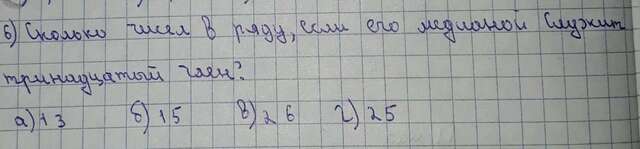 6) Сколько чисел в ряду, если его медианой служит
тринадцатый член?
а) 13 б) 15 в) 26 г) 25